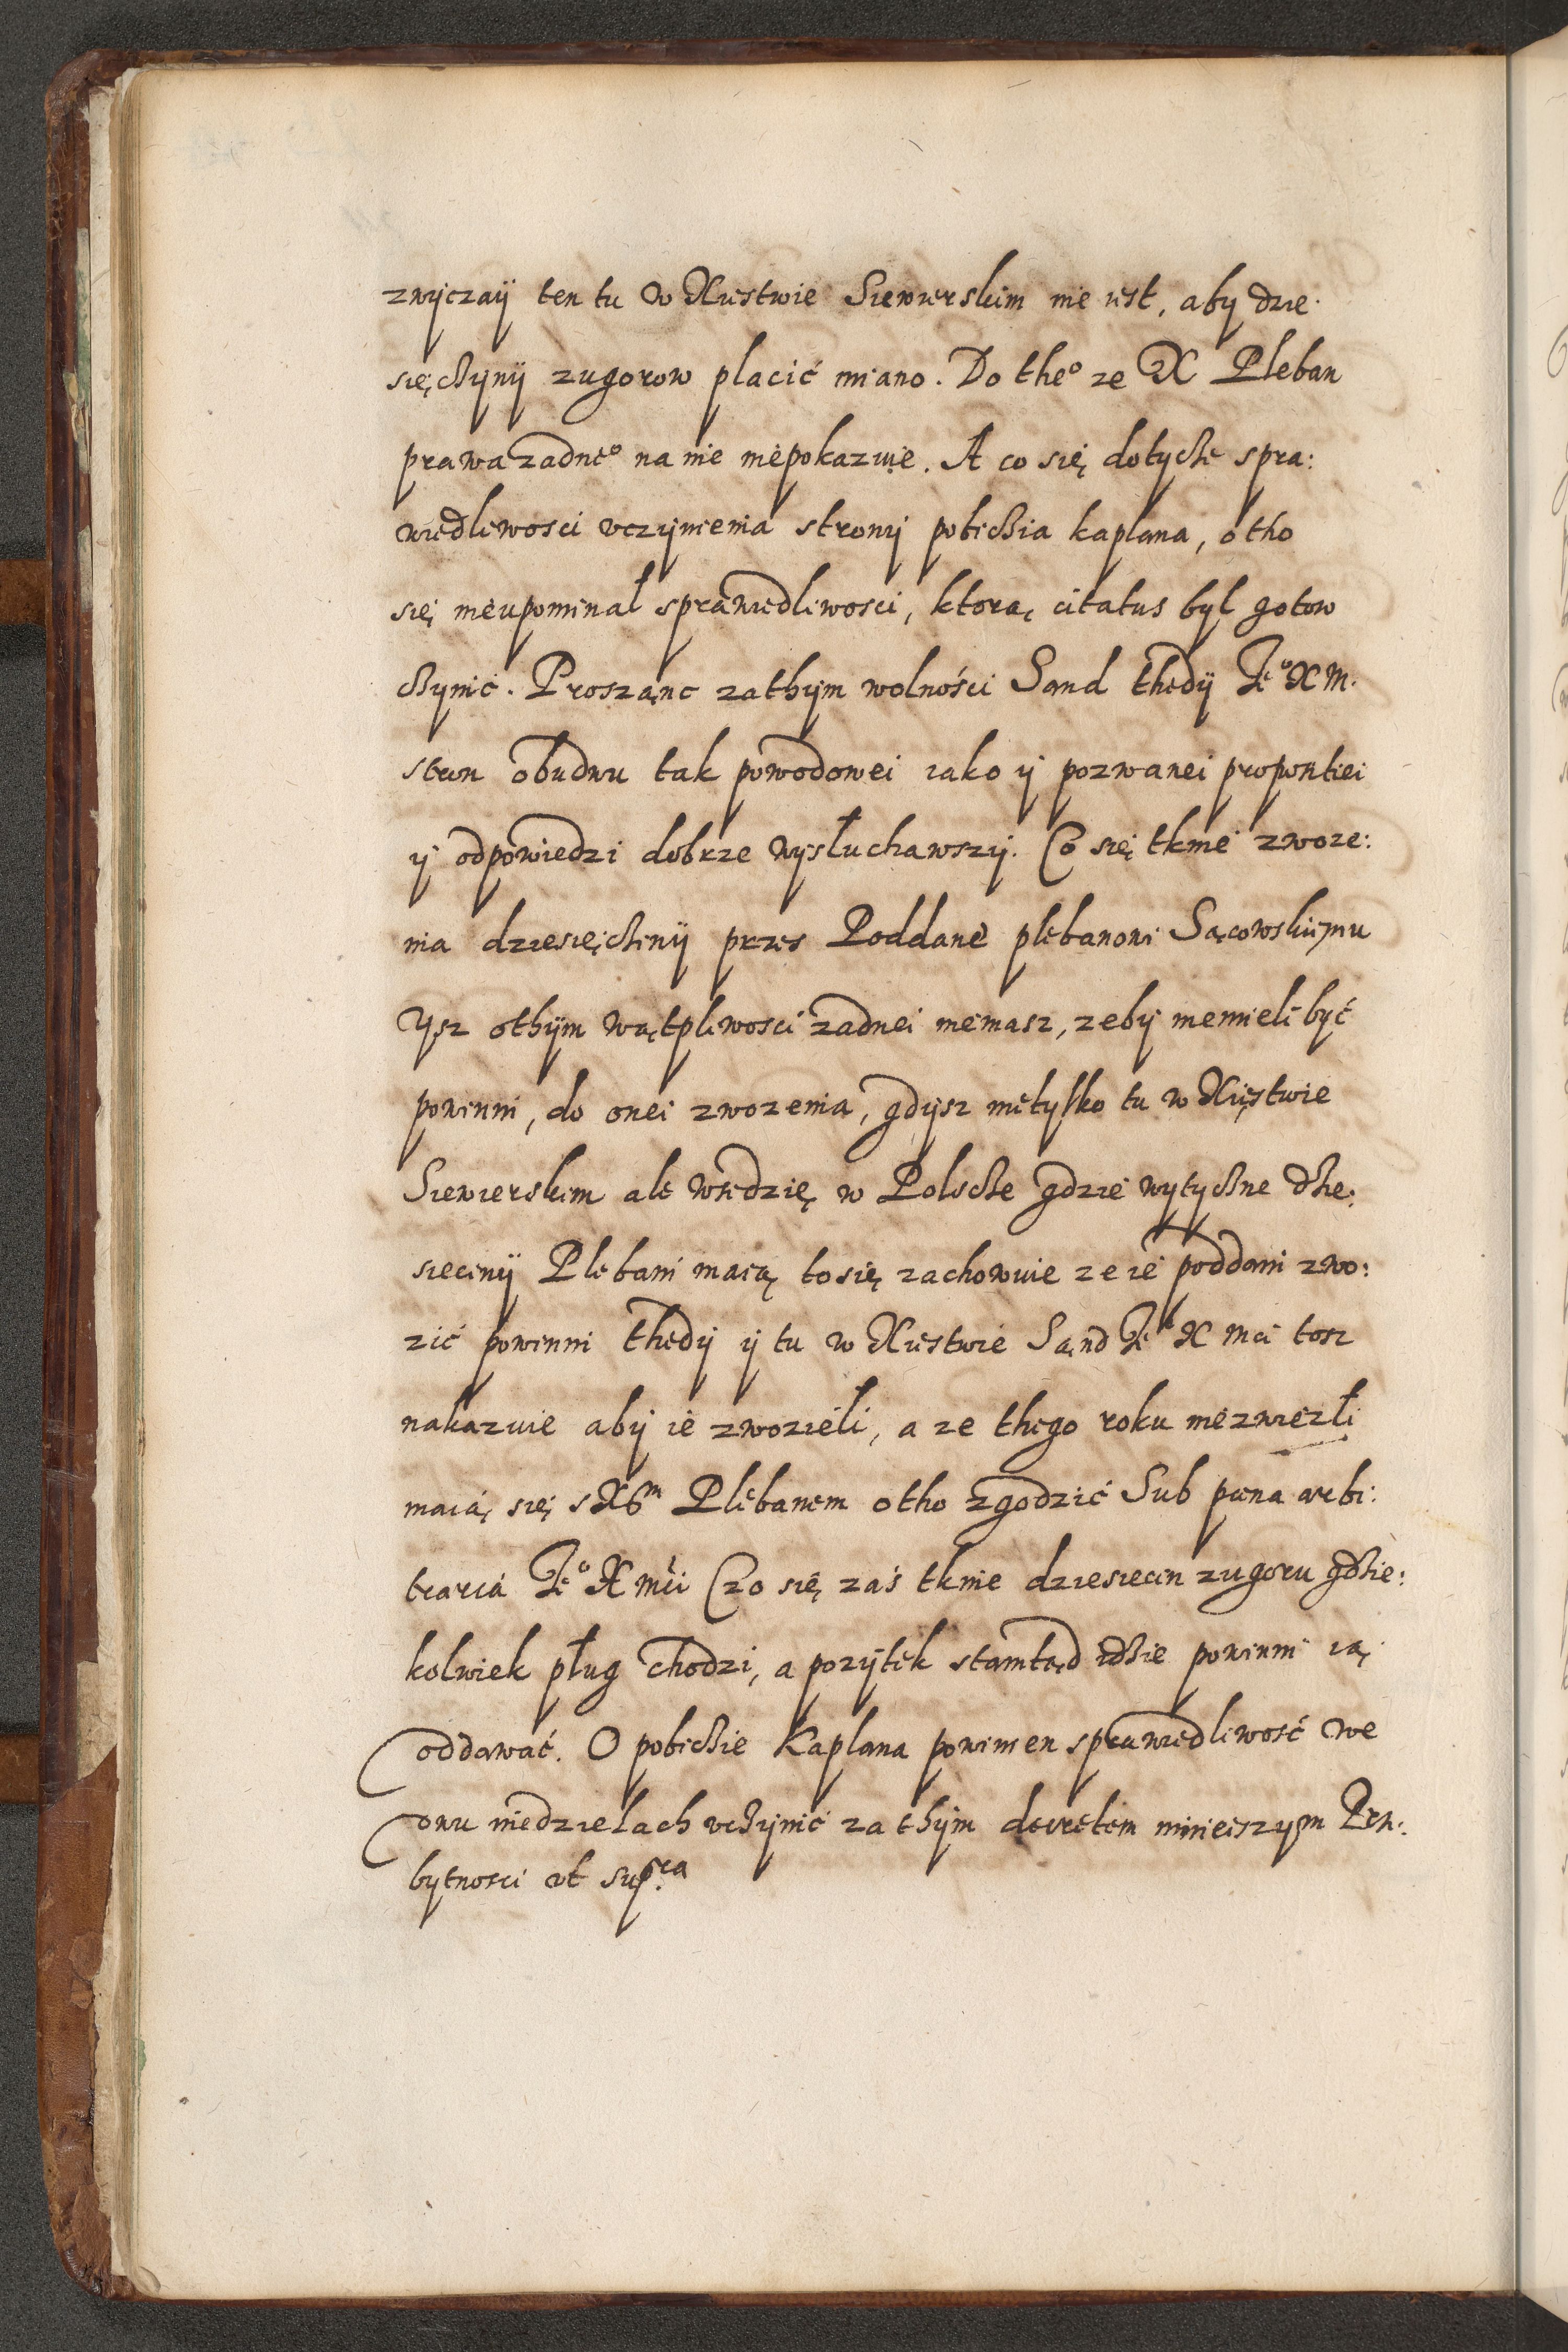 zwyczaÿ ten tu w Xiestwie Siewierskim nie iest, aby dzie:
sięczyny z ugorow placić miano. Do the° ze X Pleban
prawa zadne° na nie niepokazuie. A co się dotycze spra:
wiedliwosci vczynienia strony pobiczia kaplana, o tho
się nieupominał sprawiedliwosci, ktorą citatus był gotow
czynić. Proszanc zathym wolności Sand thedÿ Je° X M.
stron obudwu tak powodowei iako ÿ pozwanei propositiei
ÿ odpowiedzi dobrze wysłuchawszy. Co się tknie zwoze:
nia dziesięcinÿ przes Poddane plebanowi Sącowskiemu
Ysz othÿm wątpliwosci zadnei niemasz, zeby niemieli być
powinni, do onei zwozenia, gdysz nietylko tu w Xięstwie
Siewierskim ale wszedzię w Polscze gdzie wytyczne dzie:
siecinÿ Plebani maią to się zachowuie ze ie poddani zwo:
zić powinni thedÿ ÿ tu w Xiestwie Sąnd Je° X Mci tosz
nakazuie aby ie zwozieli, a ze thego roku niezwiezli
maią się s X6m Plebanem otho zgodzić Sub pœna arbi:
traria Je° X mci Czo się zaś tknie dziesiecin z ugoru gdzie:
kolwiek pług chodzi, a pozÿtek stamtąd idzie powinni ią
oddawać. O pobiczie Kaplana powinien sprawiedliwość we
dwu niedzielach vczynić za thÿm decretem ninieiszym Prn.
bytnosci vt supra